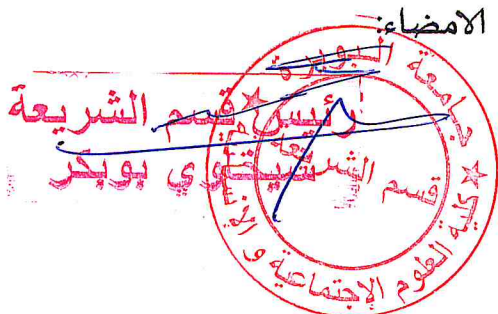 الامضاء:
رئيس قسم الشريعة
شيخاوي بوبكر
جامعة البويرة
كلية العلوم الإجتماعية و
قسم الشريعة